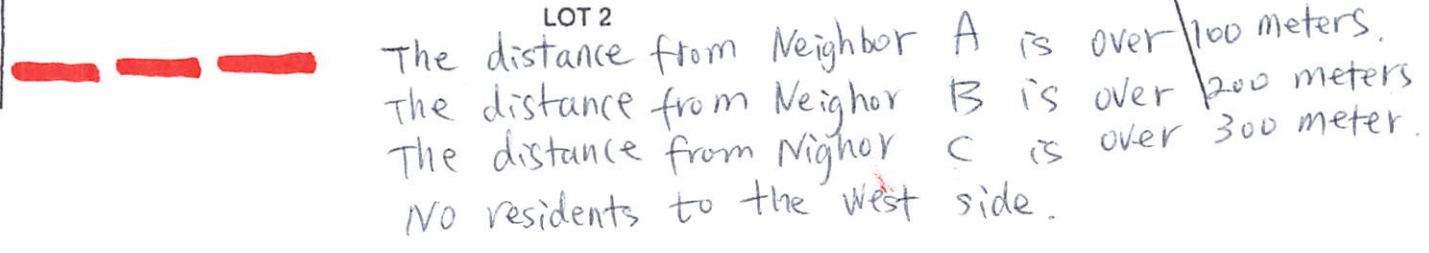 LOT 2
The distance from Neighbor A is over 100 meters.
The distance from Neighor B is over 200 meters
The distance from Nighor C is over 300 meter.
No residents to the west side.